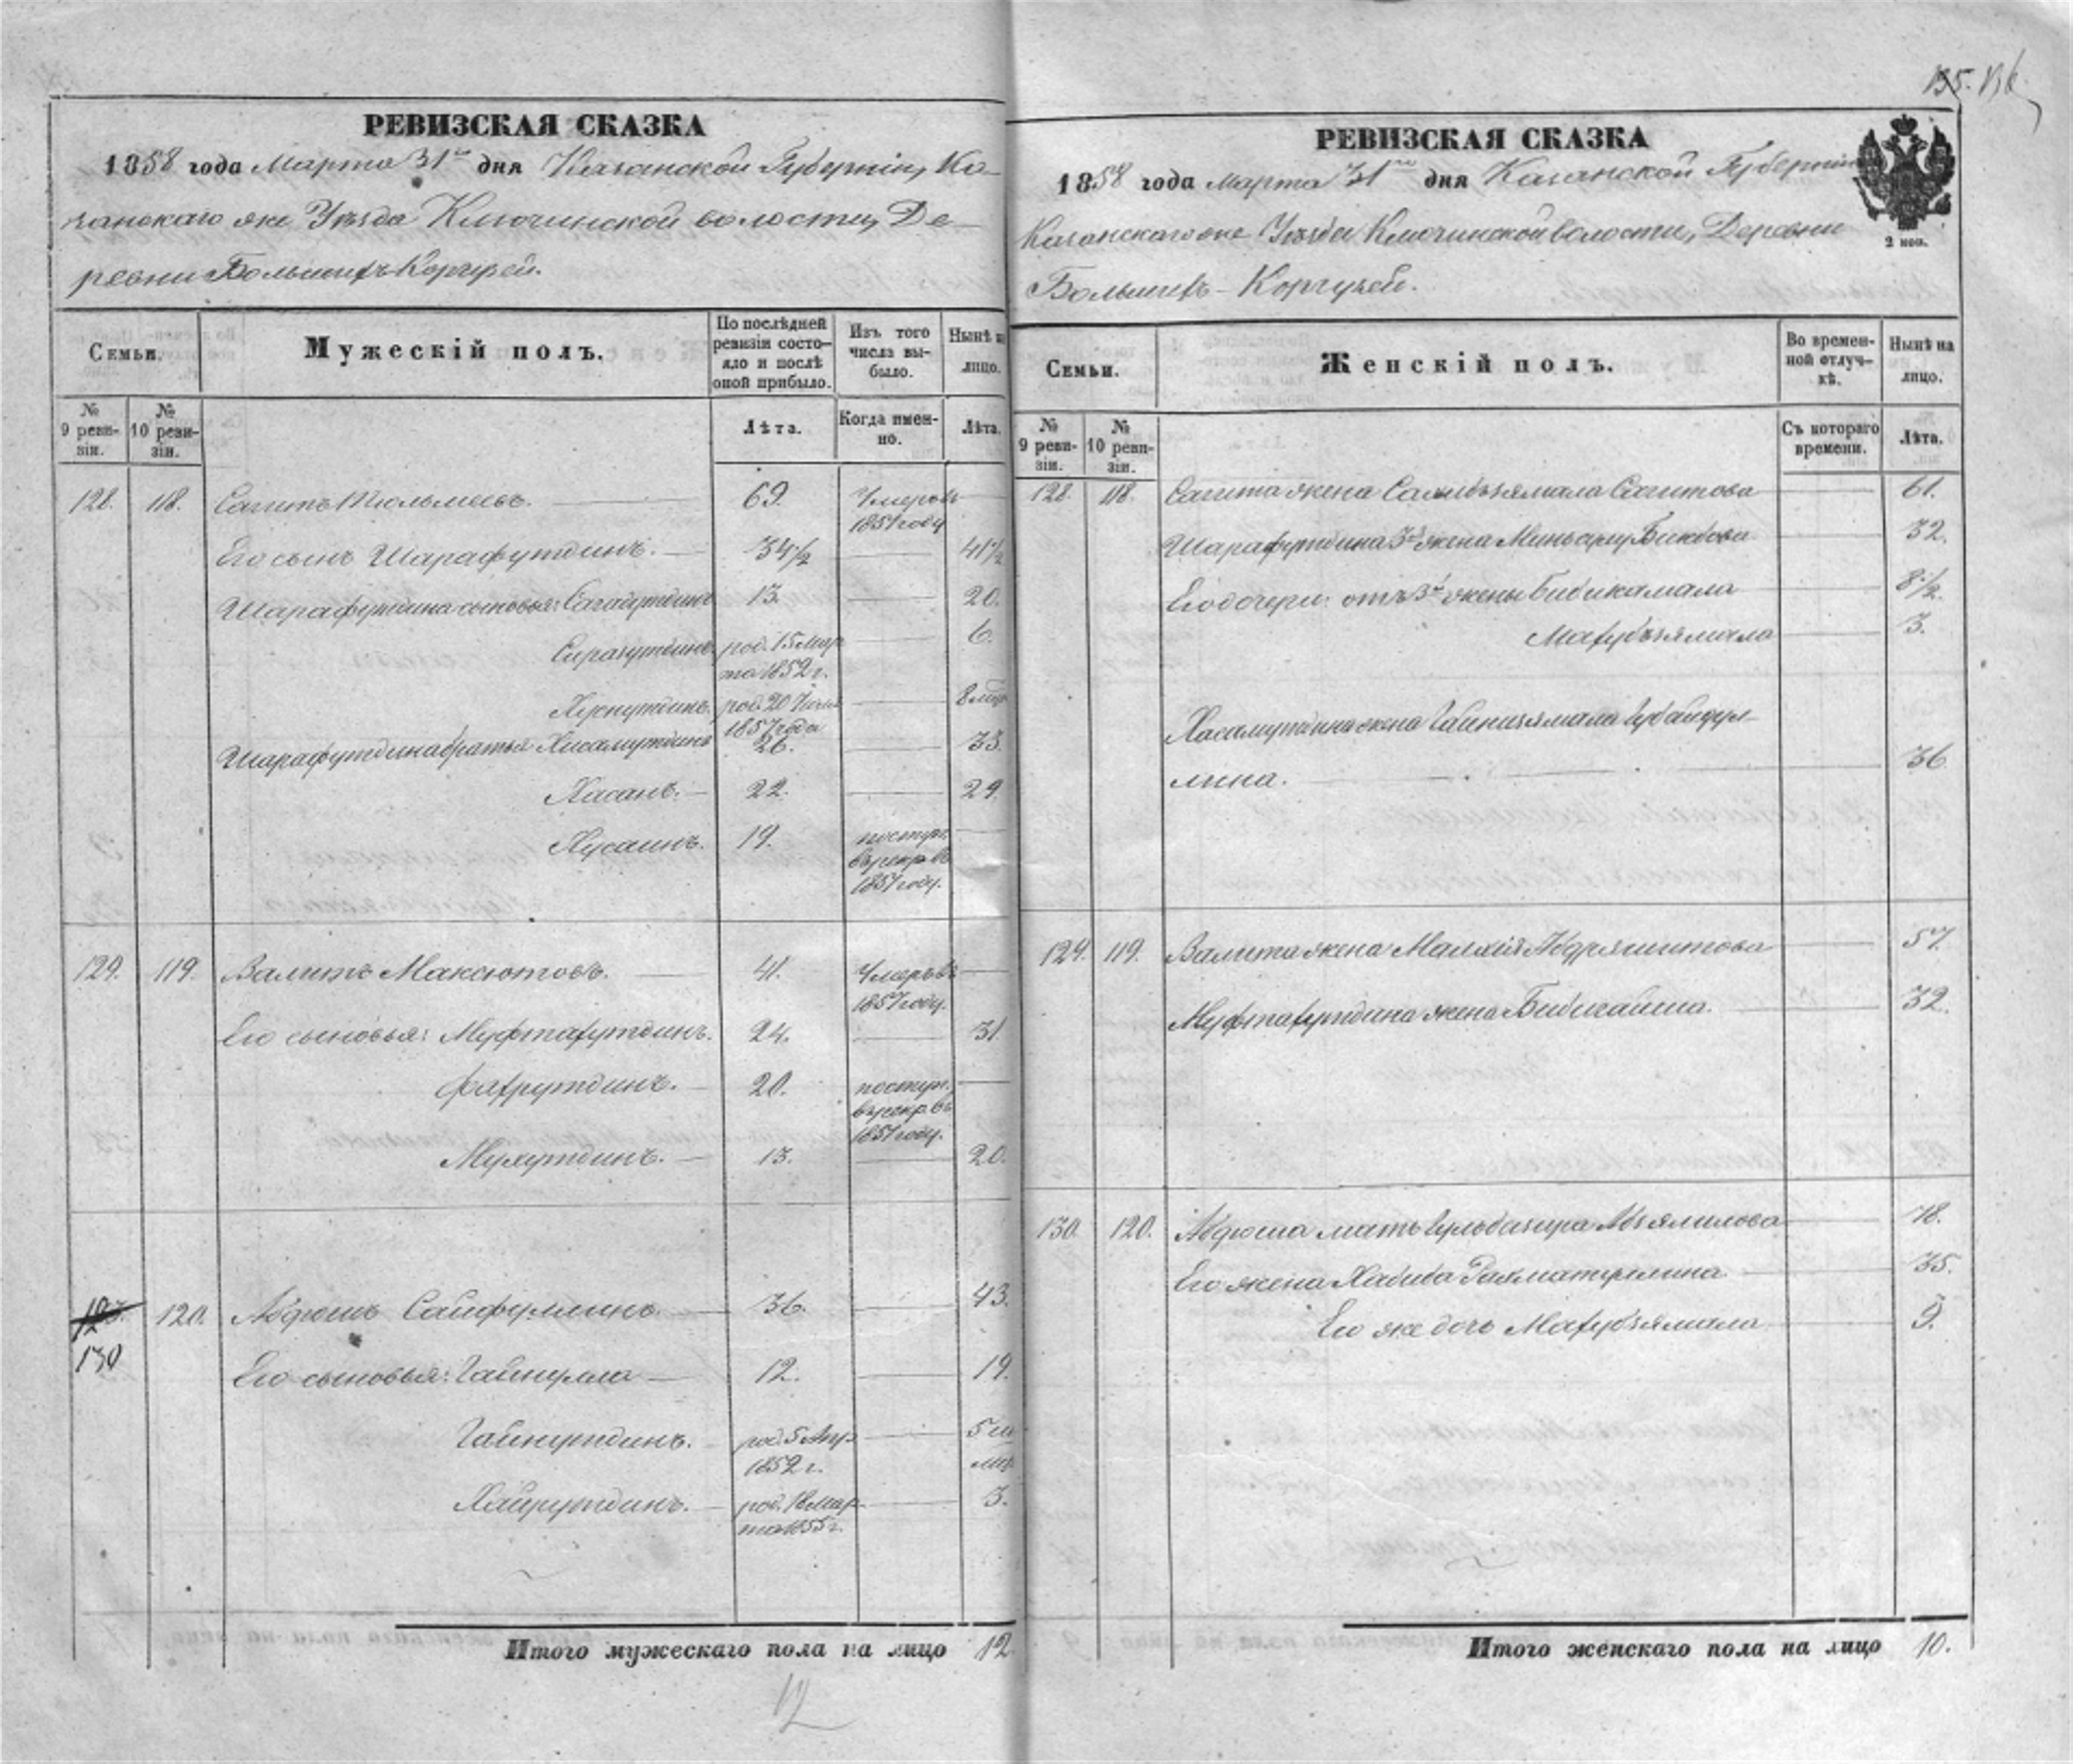 РЕВИЗСКАЯ СКАЗКА
1858 года Марта 31го дня Казанской Губерніи, Ка-
занскаго же Уѣзда Ключинской волости, Де-
ревни Большихъ Коргузей.
Семьи.
Мужескій полъ.
По послѣдней ревизіи состо-
яло и послѣ оной прибыло.
Изъ того числа вы-
было.
Нынѣ на лицо.
№ 9 реви-
зіи.
№ 10 реви-
зіи.
Лѣта.
Когда имен-
но.
Лѣта.
128. 118. Сагитъ Тюльмеевъ. 69. Умеръ въ
1851 году
Его сынъ Шарафутдинъ. 34½ 41½
Шарафутдина сыновья: Сагадутдинъ 13. 20.
Сиразутдинъ род. 15 Мар
та 1852 г. 6.
род. 20 Іюля
1857 года 8 мѣс
Шарафутдина братья Хисамутдинъ 26. 33.
Хасанъ. 22. 29.
Хусаинъ. 19. поступ.
въ рекр. въ
1851 году.
129. 119. Валитъ Максютовъ. 41. Умеръ въ
1857 году.
Его сыновья: Муфтахутдинъ. 24. 31
Фахрутдинъ. 20. поступ.
въ рекр. въ
1851 году.
13. 20.
123.
130 120. Абдюшъ Сайфуллинъ. 36. 43.
Его сыновья: Гайнулла 12. 19.
Гайнутдинъ. род. 5 Апр
1852 г. 5 ш
мѣс
Хайрутдинъ. род. 18 Мар
та 1855 г. 3.
Итого мужескаго пола на лицо 12
12
135. 136.
РЕВИЗСКАЯ СКАЗКА
1858 года Марта 31го дня Казанской Губерніи
Казанскаго же Уѣзда Ключинской волости, Деревни
Большихъ-Коргузей.
2 коп.
Семьи.
Женскій полъ.
Во времен-
ной отлуч-
кѣ.
Нынѣ на лицо.
№ 9 реви-
зіи.
№ 10 реви-
зіи.
Съ котораго времени.
Лѣта.
128. 118. Сагита жена Салибъзямала Сагитова 61.
Шарафутдина 3я жена Миньсылу Бикбова 32.
Его дочери: отъ 3й жены Бибикамала 8½.
Махубъзямала 3.
Хасамутдина жена Гайнизямала Губайдул-
лина. 36
129. 119. Валита жена Абдряшитова 57.
Муфтахутдина жена Бибигайша. 32.
130. 120. Абдюша мать Гульбагира Абзялилова 78.
Его жена Хабиба Рахматуллина 35.
Его же дочь Махубзямала 9.
Итого женскаго пола на лицо 10.